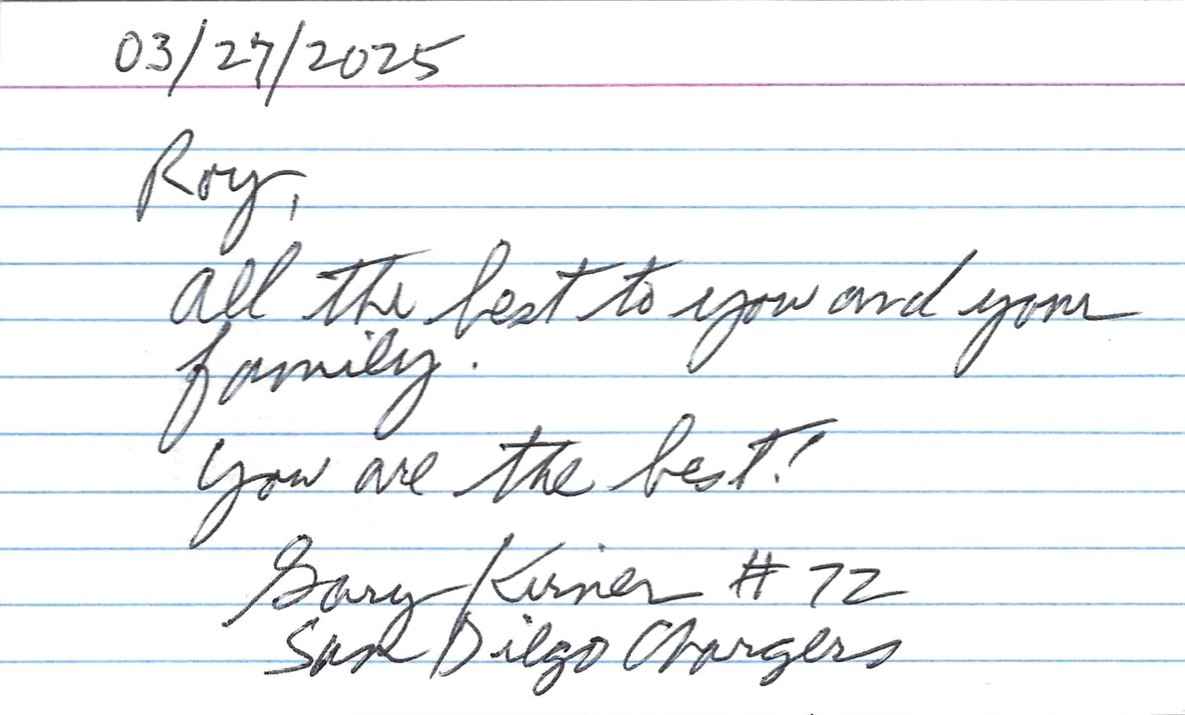 03/27/2025
Roy,
All the best to you and your
family.
You are the best!
Gary Kirner # 72
San Diego Chargers